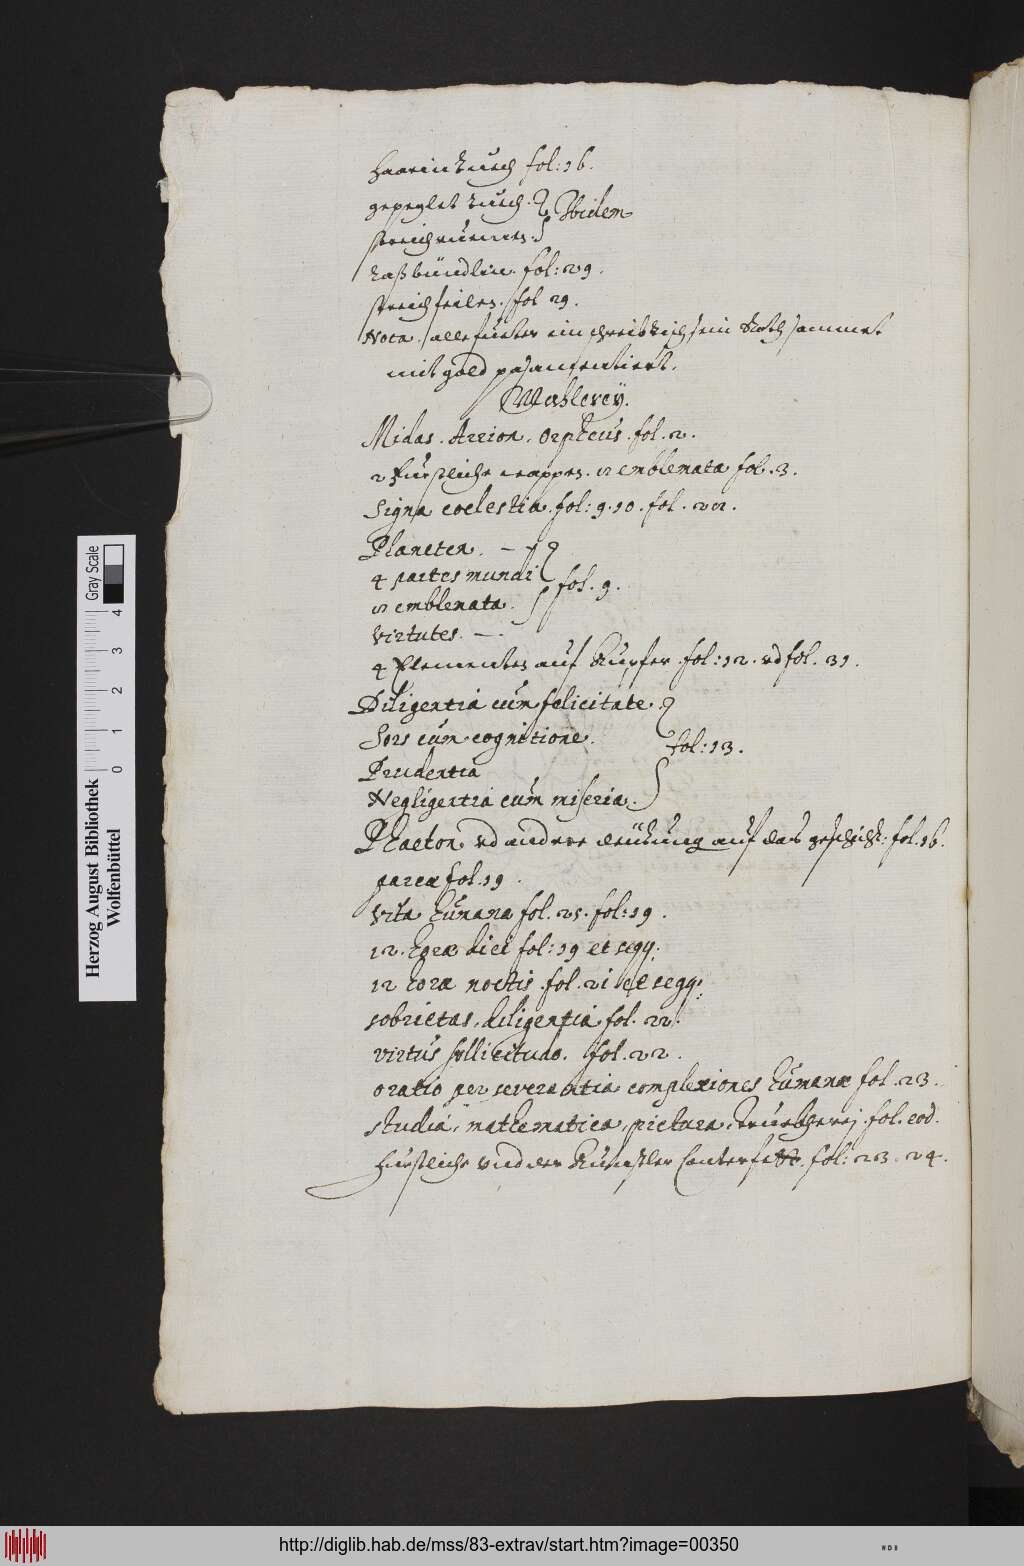 Haarin tuech fol: 16.
gepeglet tuech.
Ibidem
streichriemen.
Laßbündlin. fol: 29.
streichfeilen. fol 29.
Nota. alle fueter ein schreibtisch sein Roth sammet
mit gold pasamentiert.
Mahlereÿ.
Midas. Arrion. Orpheus. fol. 2.
2 Fürstliche wappen. 12 emblemata fol. 3.
Signa coelestia. fol: 9. 10. fol. 22.
Planeten. – 7
4 partes mundi
fol. 9.
12 emblemata.
Virtutes. –.
4 Elementen auf Kupfer. fol: 12. vd fol. 31.
Diligentia cum felicitate.
Sors cum cognitione.
fol: 13.
Prudentia
Negligentia cum miseria.
Phaeton vd andere deütung auf das geschicht: fol. 16.
parcæ fol. 19.
Vita humana fol. 25. fol: 19.
12. horæ diei fol: 19 et seqq:
12 horæ noctis. fol. 21 et seqq:
sobrietas, diligentia fol. 22.
virtus sollicitudo. fol. 22.
oratio perseverantia complexiones humanæ fol. 23.
studia, mathematica, pictura, fol. eod.
Fürstliche vnd der Künstler Conterfett. fol: 23. 24.
Herzog August Bibliothek
Wolfenbüttel
0 1 2 3 4
Gray Scale
http://diglib.hab.de/mss/83-extrav/start.htm?image=00350
WDB